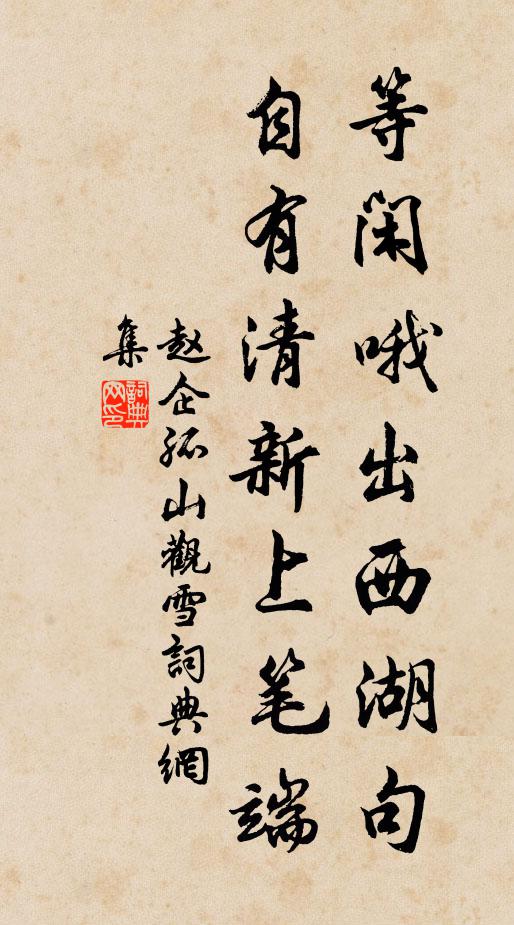 等闲哦出西湖句
自有清新上笔端
赵企孤山觀雪詞典網
集
詞典
网印